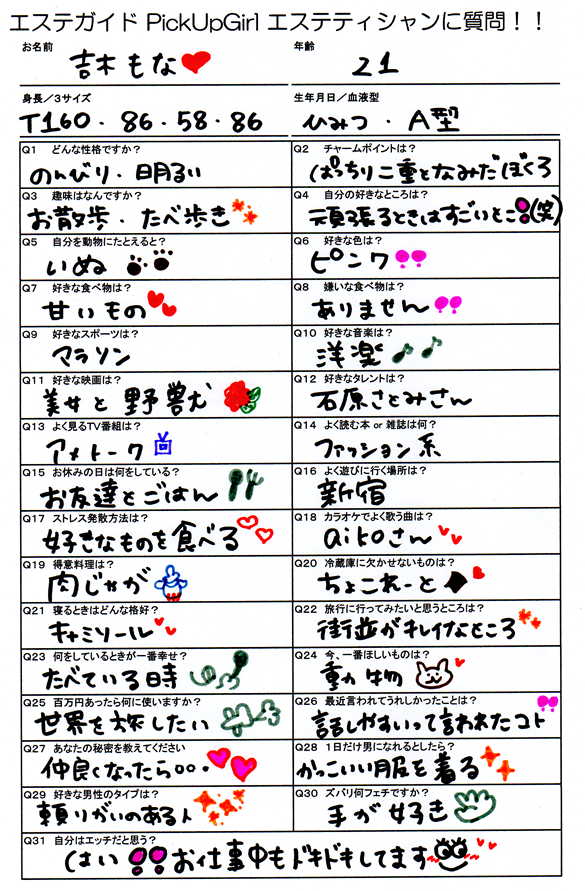 エステガイド PickUpGirl エステティシャンに質問！！
お名前 年齢
吉木もな 21
身長／3サイズ 生年月日／血液型
T160・86・58・86 ひみつ・A型
Q1 どんな性格ですか？ Q2 チャームポイントは？
のんびり・明るい ぱっちり二重となみだぼくろ
Q3 趣味はなんですか？ Q4 自分の好きなところは？
お散歩・たべ歩き 頑張るときはすごいとこ!(笑)
Q5 自分を動物にたとえると？ Q6 好きな色は？
いぬ ピンク!!
Q7 好きな食べ物は？ Q8 嫌いな食べ物は？
甘いもの ありません!!
Q9 好きなスポーツは？ Q10 好きな音楽は？
マラソン 洋楽
Q11 好きな映画は？ Q12 好きなタレントは？
美女と野獣 石原さとみさん
Q13 よく見るTV番組は？ Q14 よく読む本 or 雑誌は何？
アメトーク ファッション系
Q15 お休みの日は何をしている？ Q16 よく遊びに行く場所は？
お友達とごはん 新宿
Q17 ストレス発散方法は？ Q18 カラオケでよく歌う曲は？
好きなものを食べる aikoさん
Q19 得意料理は？ Q20 冷蔵庫に欠かせないものは？
肉じゃが ちょこれーと
Q21 寝るときはどんな格好？ Q22 旅行に行ってみたいと思うところは？
キャミソール 街並がキレイなところ
Q23 何をしているときが一番幸せ？ Q24 今、一番ほしいものは？
たべている時 動物
Q25 百万円あったら何に使いますか？ Q26 最近言われてうれしかったことは？
世界を旅したい 話しやすいって言われたコト
Q27 あなたの秘密を教えてください Q28 1日だけ男になれるとしたら？
仲良くなったら・・・ かっこいい服を着る
Q29 好きな男性のタイプは？ Q30 ズバリ何フェチですか？
頼りがいのある人 手が好き
Q31 自分はエッチだと思う？
はい!!お仕事中もドキドキしてます